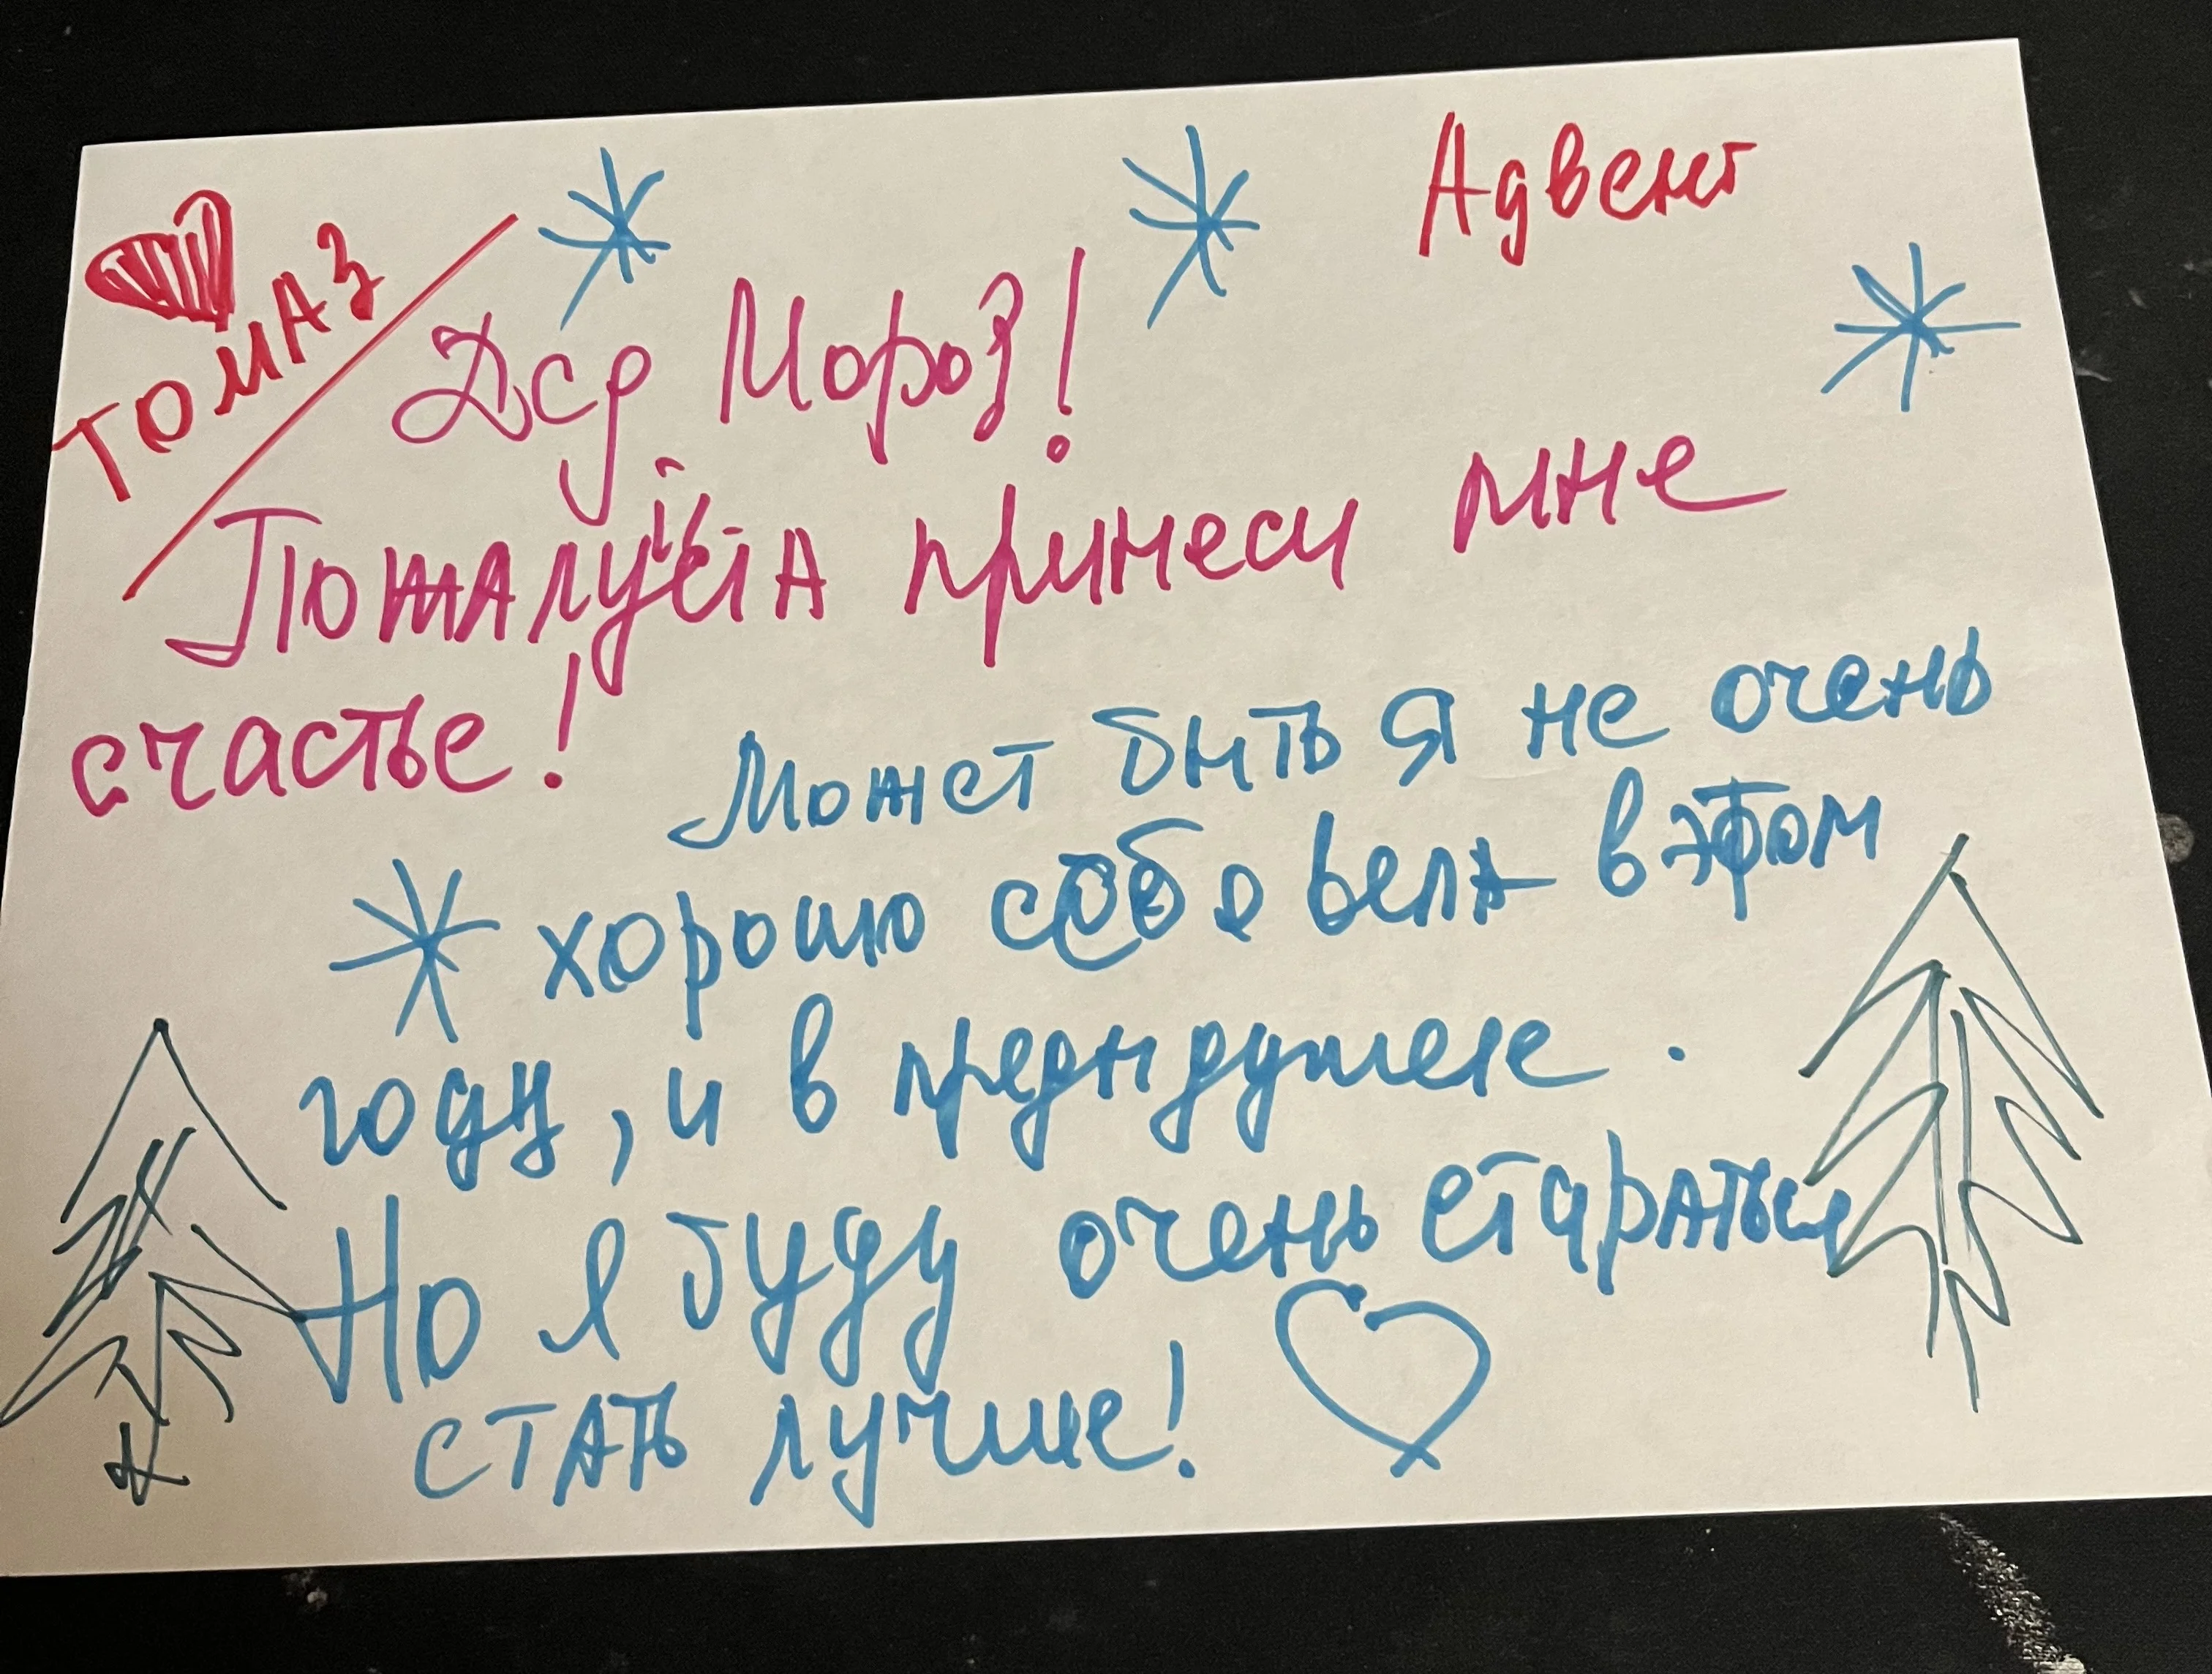 Адвент
ТОМАЗ
Дед Мороз!
Пожалуйста принеси мне
счастье!
Может быть я не очень
хорошо себя вела в этом
году, и в предыдущем.
Но я буду очень стараться
стать лучше!